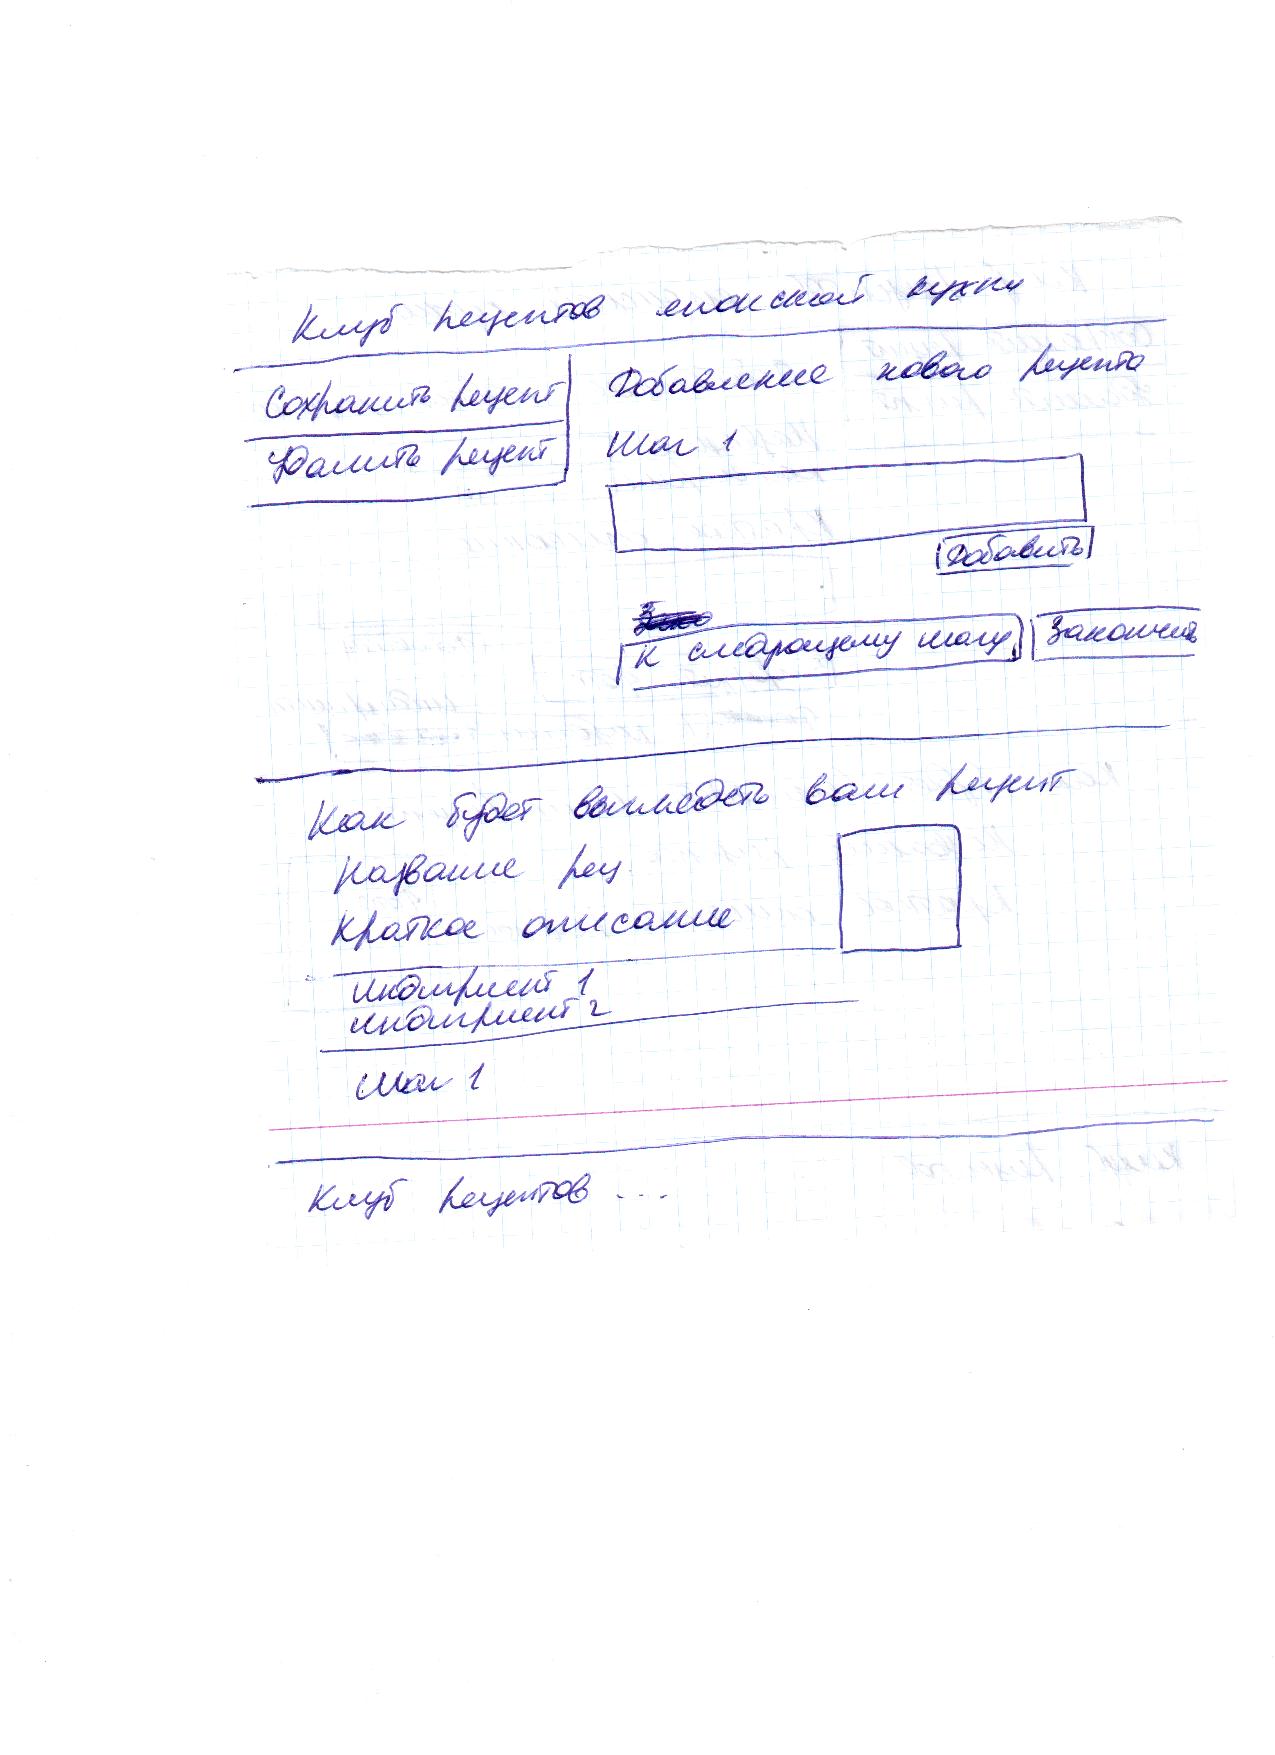 Клуб рецептов японской кухни
Сохранить рецепт
Удалить рецепт
Добавление нового рецепта
Шаг 1
Добавить
К следующему шагу
Закончить
Как будет выглядеть ваш рецепт
Название рец.
Краткое описание
Ингредиент 1
Ингредиент 2
Шаг 1
Клуб рецептов ...